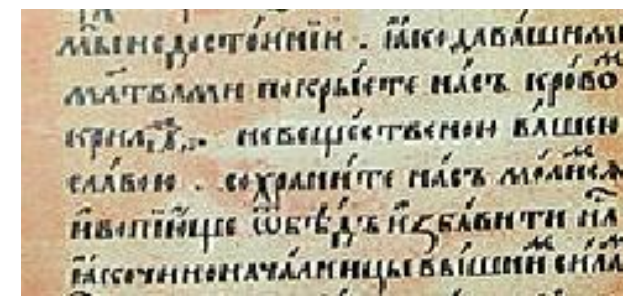 мы́недосто́йнїи . ꙗ҆́кодава́шими
мл҃твами покры́ете на́съ кро́воⷨ
крилꙋ . невеще́ственою ва́шею
сла́вою . сохрани́те на́съ
и҆вопїю́ще ѿбѣ́дъ и҆ꙁба́вити на
ꙗ҆́кочинонача́лницы вы́шниⷨ сила